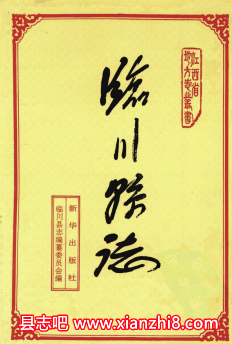 江西省
地方志丛书
临川县志
新华出版社
临川县志编纂委员会编
县志吧 www.xianzhi8.com